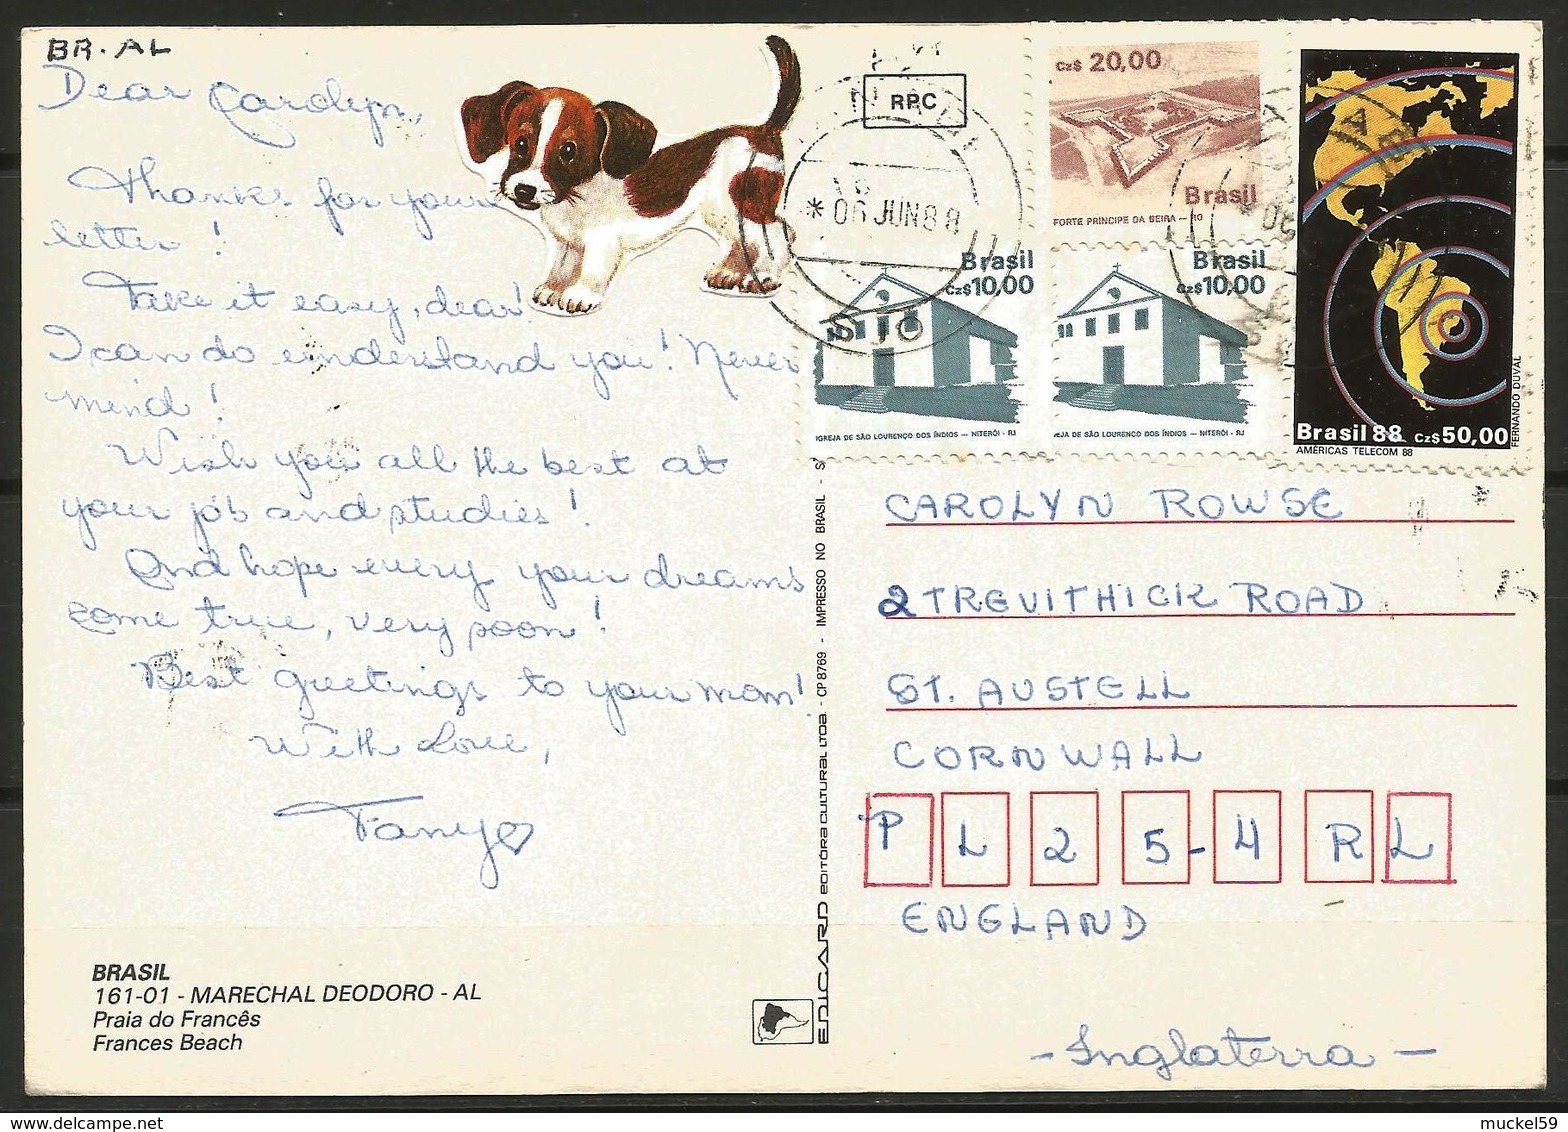 BR-AL
Dear Carolyn,
Thanks for your
letter!
Take it easy, dear!
I can do understand you! Never
mind!
Wish you all the best at
your job and studies!
And hope every your dreams
come true, very soon!
Best greetings to your mom!
With Love,
Fany
BRASIL
161-01 - MARECHAL DEODORO - AL
Praia do Francês
Frances Beach
EDICARD EDITÔRA CULTURAL LTDA - CP 8769 - IMPRESSO NO BRASIL - S
RPC
* 06 JUN 88
SJC
Czs 20,00
Brasil
FORTE PRINCIPE DA BEIRA — RO
Brasil
Czs 10,00
IGREJA DE SÃO LOURENÇO DOS ÍNDIOS — NITERÓI - RJ
Brasil
Czs 10,00
EJA DE SÃO LOURENÇO DOS ÍNDIOS — NITERÓI - RJ
Brasil 88 Czs 50,00
AMÉRICAS TELECOM 88
FERNANDO DUVAL
CAROLYN ROWSE
2 TREVITHICK ROAD
ST. AUSTELL
CORNWALL
PL25-4RL
ENGLAND
- Inglaterra -
muckel59